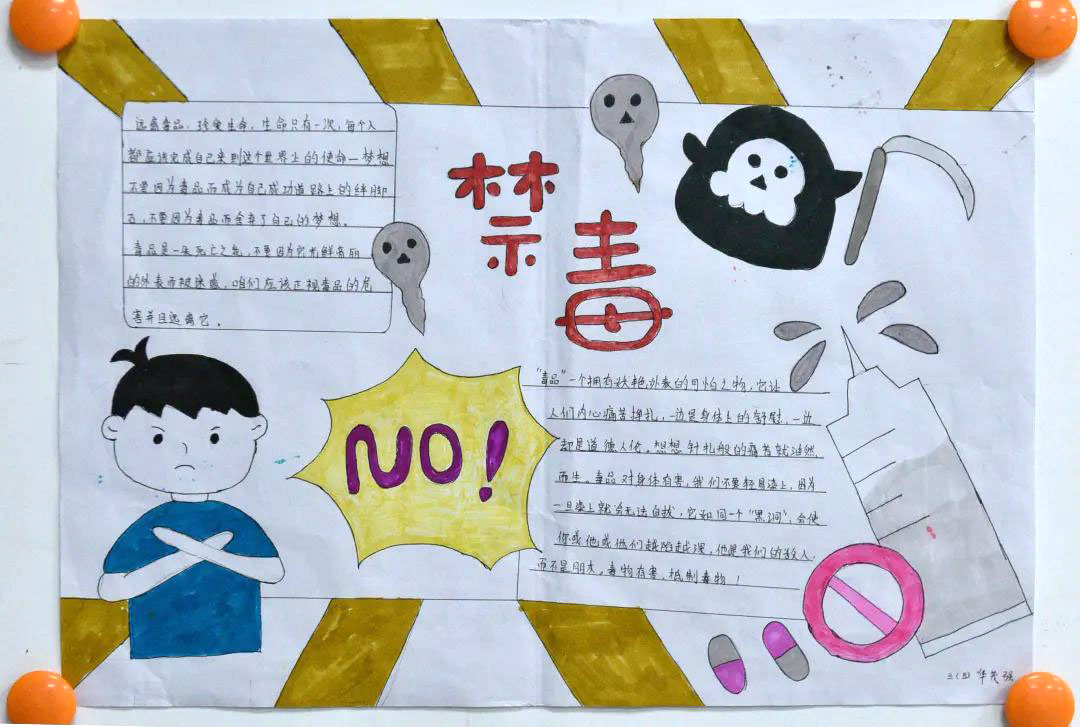 远离毒品,珍爱生命,生命只有一次,每个人
都应该完成自己来到这个世界上的使命一梦想
不要因为毒品而成为自己成功道路上的绊脚
石,不要因为毒品而舍弃了自己的梦想。
毒品是一朵死亡之花,不要因为它光鲜亮丽
的外表而被迷惑,咱们应该正视毒品的危
害并且远离它。
禁毒
NO!
"毒品"一个拥有妖艳外表的可怕之物,它让
人们内心痛苦挣扎,一边是身体上的舒慰,一边
却是道德人伦,想想针扎般的痛苦就油然
而生。毒品对身体有害,我们不要轻易染上,因为
一旦染上就会无法自拔,它如同一个"黑洞",会使
你或他或他们越陷越深,他是我们的敌人,
而不是朋友。毒物有害,抵制毒物!
三(五) 华 强